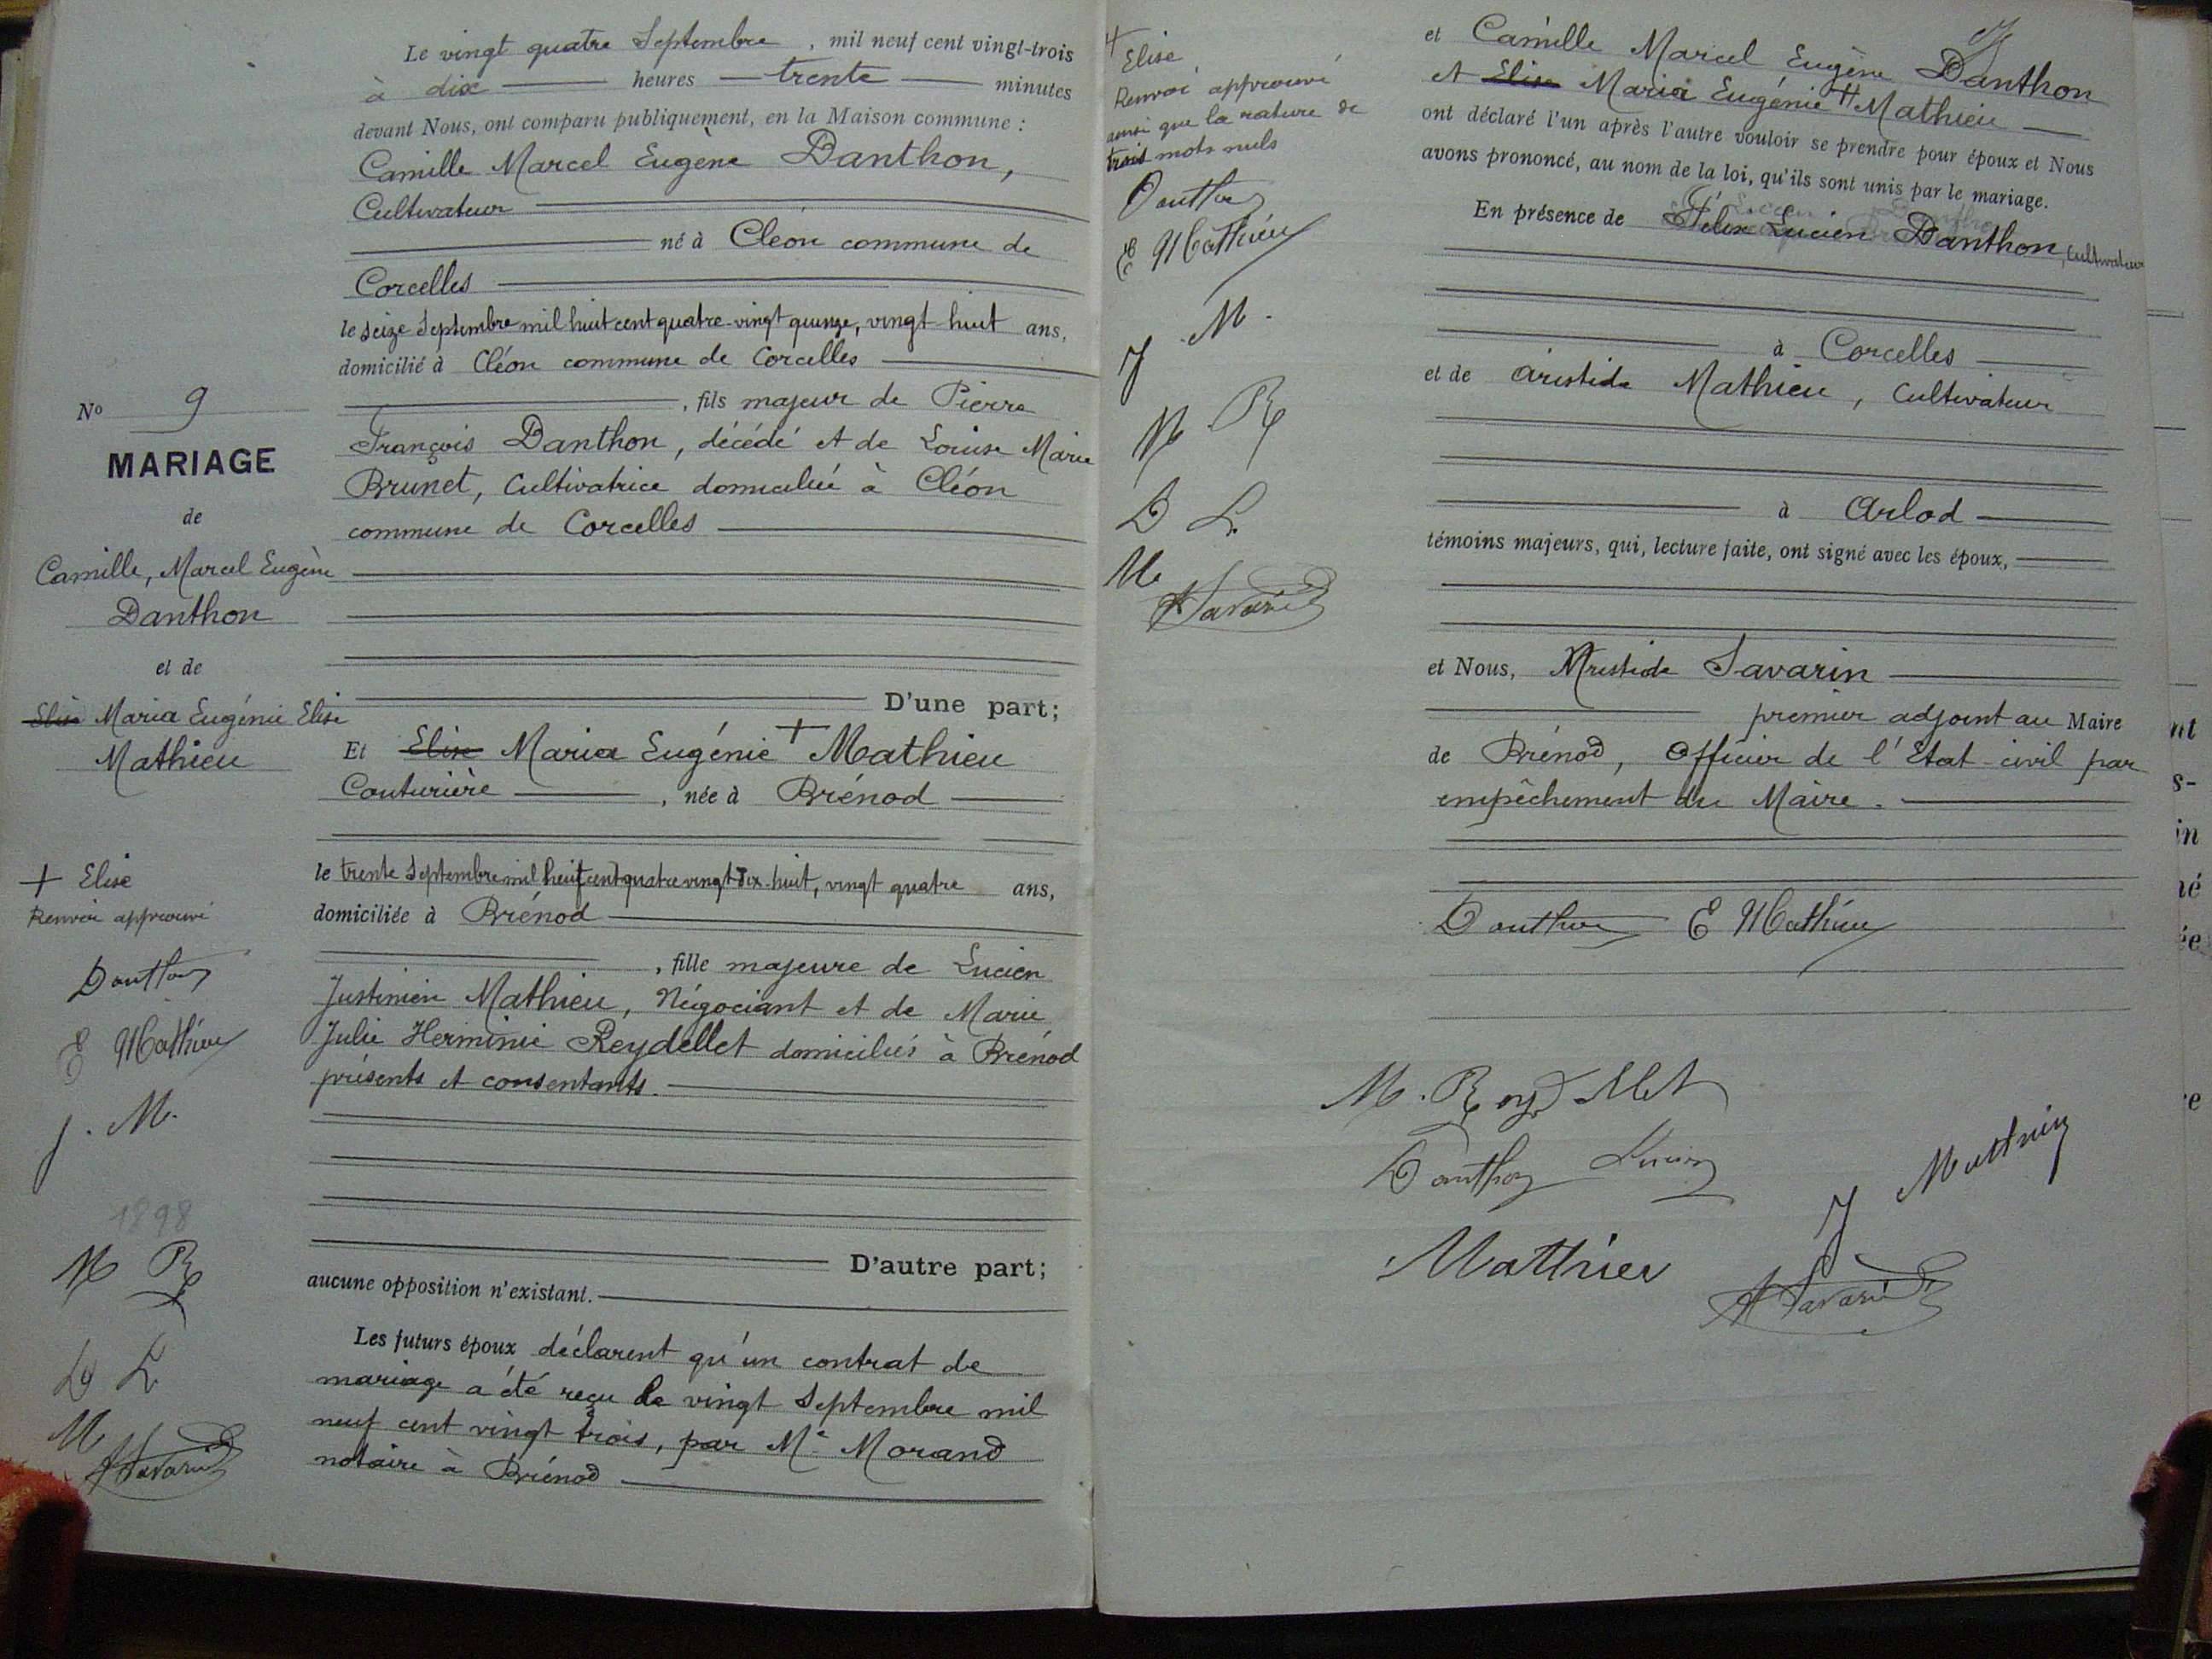 Le vingt quatre Septembre, mil neuf cent vingt-trois
à dix heures trente minutes
devant Nous, ont comparu publiquement, en la Maison commune :
Camille Marcel Eugène Danthon,
Cultivateur
né à Cléon commune de
Corcelles
le seize Septembre mil huit cent quatre-vingt quinze, vingt-huit ans,
domicilié à Cléon commune de Corcelles
, fils majeur de Pierre
François Danthon, décédé et de Louise Marie
Brunet, Cultivatrice domiciliée à Cléon
commune de Corcelles
D'une part;
Et Elise Maria Eugénie + Mathieu
Couturière, née à Brénod
le trente Septembre mil huit cent quatre vingt dix-huit, vingt quatre ans,
domiciliée à Brénod
, fille majeure de Lucien
Justinien Mathieu, Négociant et de Marie
Julie Herminie Reydellet domiciliés à Brénod
présents et consentants.
D'autre part;
aucune opposition n'existant.
Les futurs époux déclarent qu'un contrat de
mariage a été reçu le vingt Septembre mil
neuf cent vingt trois, par Me Morand
notaire à Brénod
No 9
MARIAGE
de
Camille, Marcel Eugène
Danthon
et de
Elise Maria Eugénie Elise
Mathieu
+ Elise
Renvoi approuvé
Danthon
E Mathieu
J. M.
1898
M R
D L
M
A Savarin
+ Elise
Renvoi approuvé
ainsi que la rature de
trois mots nuls
Danthon
E Mathieu
J M.
M R
D L.
M
A Savarin
et Camille Marcel Eugène Danthon
et Elise Maria Eugénie # Mathieu
ont déclaré l'un après l'autre vouloir se prendre pour époux et Nous
avons prononcé, au nom de la loi, qu'ils sont unis par le mariage.
En présence de Félix Lucien Danthon, Cultivateur
à Corcelles
et de Aristide Mathieu, Cultivateur
à Arlod
témoins majeurs, qui, lecture faite, ont signé avec les époux,
et Nous, Aristide Savarin
premier adjoint au Maire
de Brénod, Officier de l'Etat-civil par
empêchement du Maire.
Danthon E Mathieu
M. Reydellet
Danthon Lucien
J Mathieu
Mathieu
A Savarin
nt
s-
in
né
ée
e